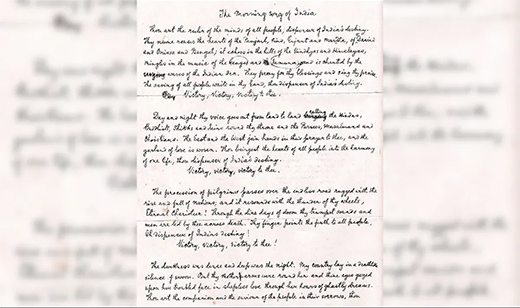 The Morning Song of India
Thou art the ruler of the minds of all people, dispenser of India's destiny.
Thy name rouses the hearts of the Punjab, Sind, Gujrat and Maratha, of Dravid
and Orissa and Bengal; it echoes in the hills of the Vindhyas and Himalayas,
mingles in the music of the Ganges and Jumuna and is chanted by the
waves of the Indian Sea. They pray for thy blessings and sing thy praise,
The saving of all people waits in thy hand, thou dispenser of India's destiny.
Victory, Victory, Victory to thee.
Day and night thy voice goes out from land to land calling the Hindus,
Buddhists, Sikhs and Jains round thy throne and the Parsees, Musulmans and
Christians. The East and the West join hands in their prayer to thee, and the
garland of love is woven. Thou bringest the hearts of all people into the harmony
of one life, thou dispenser of India's destiny.
Victory, victory, victory to thee.
The procession of pilgrims passes over the endless road rugged with the
rise and fall of nations; and it resounds with the thunder of thy wheels,
Eternal Charioteer! Through the dire days of doom thy trumpet sounds and
men are led by thee across death. Thy finger points the path to all people,
Oh dispenser of India's destiny!
Victory, victory, victory to thee!
The darkness was dense and deep was the night. My country lay in a deathlike
silence of swoon. But thy mother arms were round her and thine eyes gazed
upon her troubled face in sleepless love through her hours of ghastly dreams.
Thou art the companion and the saviour of the people in their sorrows, thou